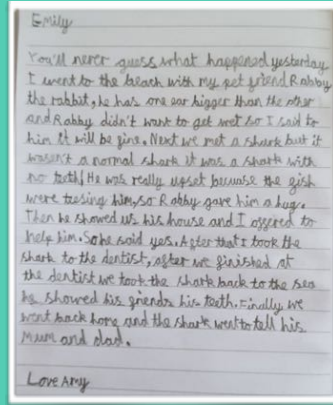 Emily
You'll never guess what happened yesterday
I went to the beach with my pet friend Rabby
the rabbit, he has one ear bigger than the other
and Rabby didn't want to get wet so I said to
him it will be fine. Next we met a shark but it
wasn't a normal shark it was a shark with
no teeth! He was really upset becuase the fish
were teesing him, so Rabby gave him a hug.
Then he showed us his house and I offered to
help him. So he said yes. After that I took the
shark to the dentist, after we finished at
the dentist we took the shark back to the sea
he showed his friends his teeth. Finally we
went back home and the shark went to tell his
Mum and dad.
Love Amy